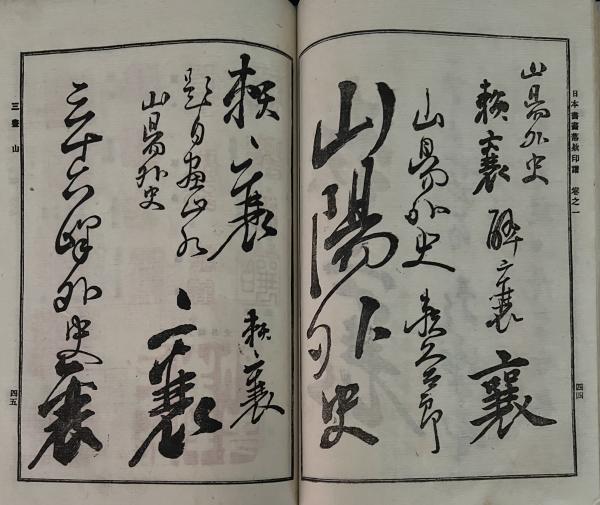 日本書畫落款印譜 卷之一
四四
山陽外史
賴襄
醉襄
襄
山陽外史
賴久太郎
山陽外史
賴襄
賴襄
題自画山水
山陽外史
襄
三十六峰外史襄
三畫 山
四五